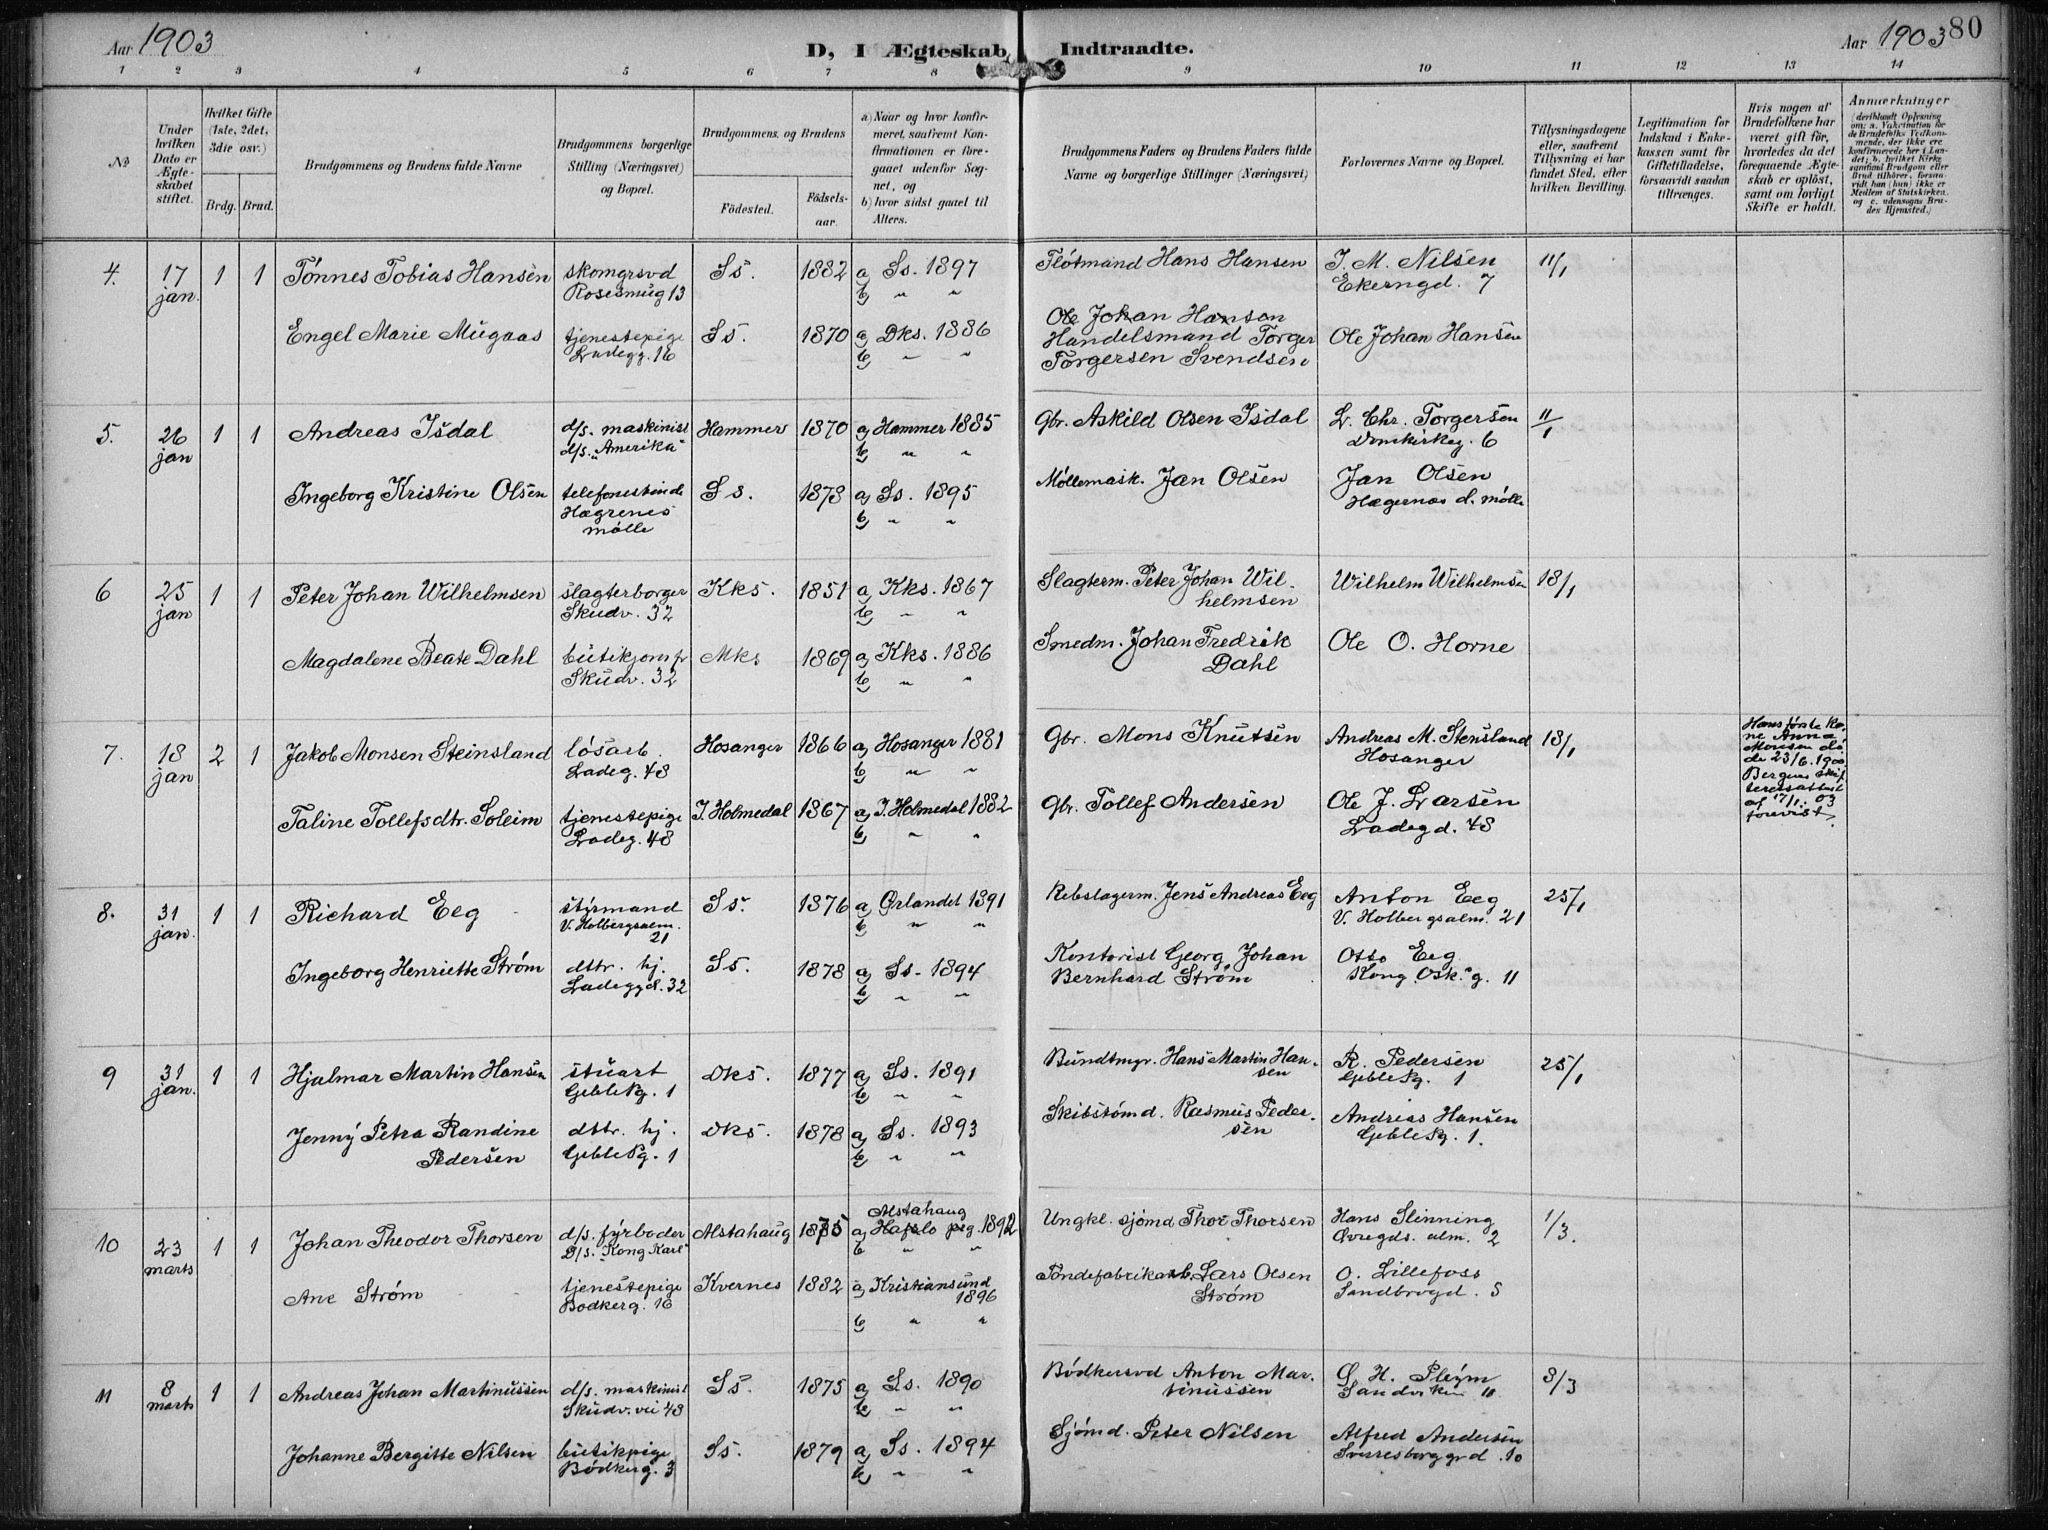 Aar 1903
D, I Ægteskab Indtraadte.
Aar 1903 80
1 2 3 4 5 6 7 8 9 10 11 12 13 14
No
Under hvilken Dato er Ægteskabet stiftet.
Hvilket Gifte (1ste, 2det, 3die osv.)
Brdg. Brud.
Brudgommens og Brudens fulde Navne
Brudgommens borgerlige Stilling (Næringsvei) og Bopæl.
Brudgommens og Brudens
Födested. Födselsaar.
a) Naar og hvor konfirmeret, saafremt Konfirmationen er foregaaet udenfor Sognet, og
b) hvor sidst gaaet til Alters.
Brudgommens Faders og Brudens Faders fulde Navne og borgerlige Stillinger (Næringsvei)
Forlovernes Navne og Bopæl.
Tillysningsdagene eller, saafremt Tillysning ei har fundet Sted, efter hvilken Bevilling.
Legitimation for Indskud i Enkekassen samt for Giftetilladelse, forsaavidt saadan tiltrænges.
Hvis nogen af Brudefolkene har været gift för, hvorledes da det foregaaende Ægteskab er oplöst, samt om lovligt Skifte er holdt.
Anmærkninger (deriblandt Oplysning om: a. Vakcination for de Brudefolks Vedkommende, der ikke ere konfirmerede her i Landet; b. hvilket Kirkesamfund Brudgom eller Brud tilhörer, forsaavidt han (hun) ikke er Medlem af Statskirken, og c. udensogns Brudes Hjemsted.)
4. 17 jan. 1 1 Tønnes Tobias Hansen skomgrsvd Rosesmug 13 Ss. 1882 a) Ss. 1897 b) " " Fløtmand Hans Hansen J. M. Nilsen Ekerngd. 7 11/1
Engel Marie Mugaas tjenestepige Ladeg. 16 Ss. 1870 a) Dks. 1886 b) " " Ole Johan Hanson Handelsmand Torger Torgersen Svendsen Ole Johan Hansen
5. 26 jan 1 1 Andreas Isdal d/s. maskinist d/s. "Amerika" Hammer 1870 a) Hammer 1885 b) " " Gbr. Askild Olsen Isdal L. Chr. Torgersen Domkirkeg. 6 11/1
Ingeborg Kristine Olsen telefonistinde Hægrenes mølle Ss. 1878 a) Ss. 1895 b) " " Møllemask. Jan Olsen Jan Olsen Hægernæs d. mølle
6 25 jan 1 1 Peter Johan Wilhelmsen slagterborger Skudv. 32 Kks. 1851 a) Kks. 1867 b) " " Slagterm. Peter Johan Wilhelmsen Wilhelm Wilhelmsen 18/1
Magdalene Beate Dahl butikjomfr Skudv. 32 Mks 1869 a) Kks. 1886 b) " " Smedm. Johan Fredrik Dahl Ole O. Horne
7. 18 jan 2 1 Jakob Monsen Steinsland løsarb. Ladeg. 48 Hosanger 1866 a) Hosanger 1881 b) " " Gbr. Mons Knutsen Andreas M. Stensland Hosanger 18/1 Hans første kone Anna Monsen døde 23/6. 1900 Bergens skifteretsattest af 17/1. 03 forevist.
Taline Tollefsdtr. Soleim tjenestepige Ladeg. 48 I. Holmedal 1867 a) I. Holmedal 1882 b) " " Gbr. Tollef Andersen Ole J. Larsen Ladegd. 48
8. 31 jan. 1 1 Richard Eeg styrmand V. Holbergsalm. 21 Ss. 1876 a) Ørlandet 1891 b) " " Rebslagerm. Jens Andreas Eeg Anton Eeg V. Holbergsalm. 21 25/1
Ingeborg Henriette Strøm dttr. hj. Ladeggd. 32 Ss. 1878 a) Ss. 1894 b) " " Kontorist Georg Johan Bernhard Strøm Otto Eeg Kong Osk. g. 11
9 31 jan. 1 1 Hjalmar Martin Hansen stuart Geblepg. 1 Dks. 1877 a) Ss. 1891 b) " " Bundtmgr. Hans Martin Hansen R. Pedersen Geblepg. 1 25/1
Jenny Petra Randine Pedersen dttr. hj. Geblepg. 1 Dks. 1878 a) Ss. 1893 b) " " Skibstømd. Rasmus Pedersen Andreas Hansen Geblepg. 1.
10 23 marts 1 1 Johan Theodor Thorsen d/s. fyrbøder D/s. "Kong Karl" Alstahaug 1875 a) Alstahaug Hafslo pg. 1892 b) " " Ungkl. sjømd Thor Thorsen Hans Slinning Øvregds. alm. 2 1/3.
Ane Strøm tjenestepige Bødkerg. 16 Kvernes 1882 a) Kristiansund 1896 b) " " Tøndefabrikarb. Lars Olsen Strøm O. Lillefoss Sandbrogd. 5
11 8 marts 1 1 Andreas Johan Martinussen d/s. maskinist Skudv. vei 48 Ss. 1875 a) Ss. 1890 b) " " Bødkersvd Anton Martinussen H. Pleym Sandviken 8/3
Johanne Bergitte Nilsen butikpige Bødkerg. 3 Ss. 1879 a) Ss. 1894 b) " " Sjømd. Peter Nilsen Alfred Andersen Sverresborggrd. 10